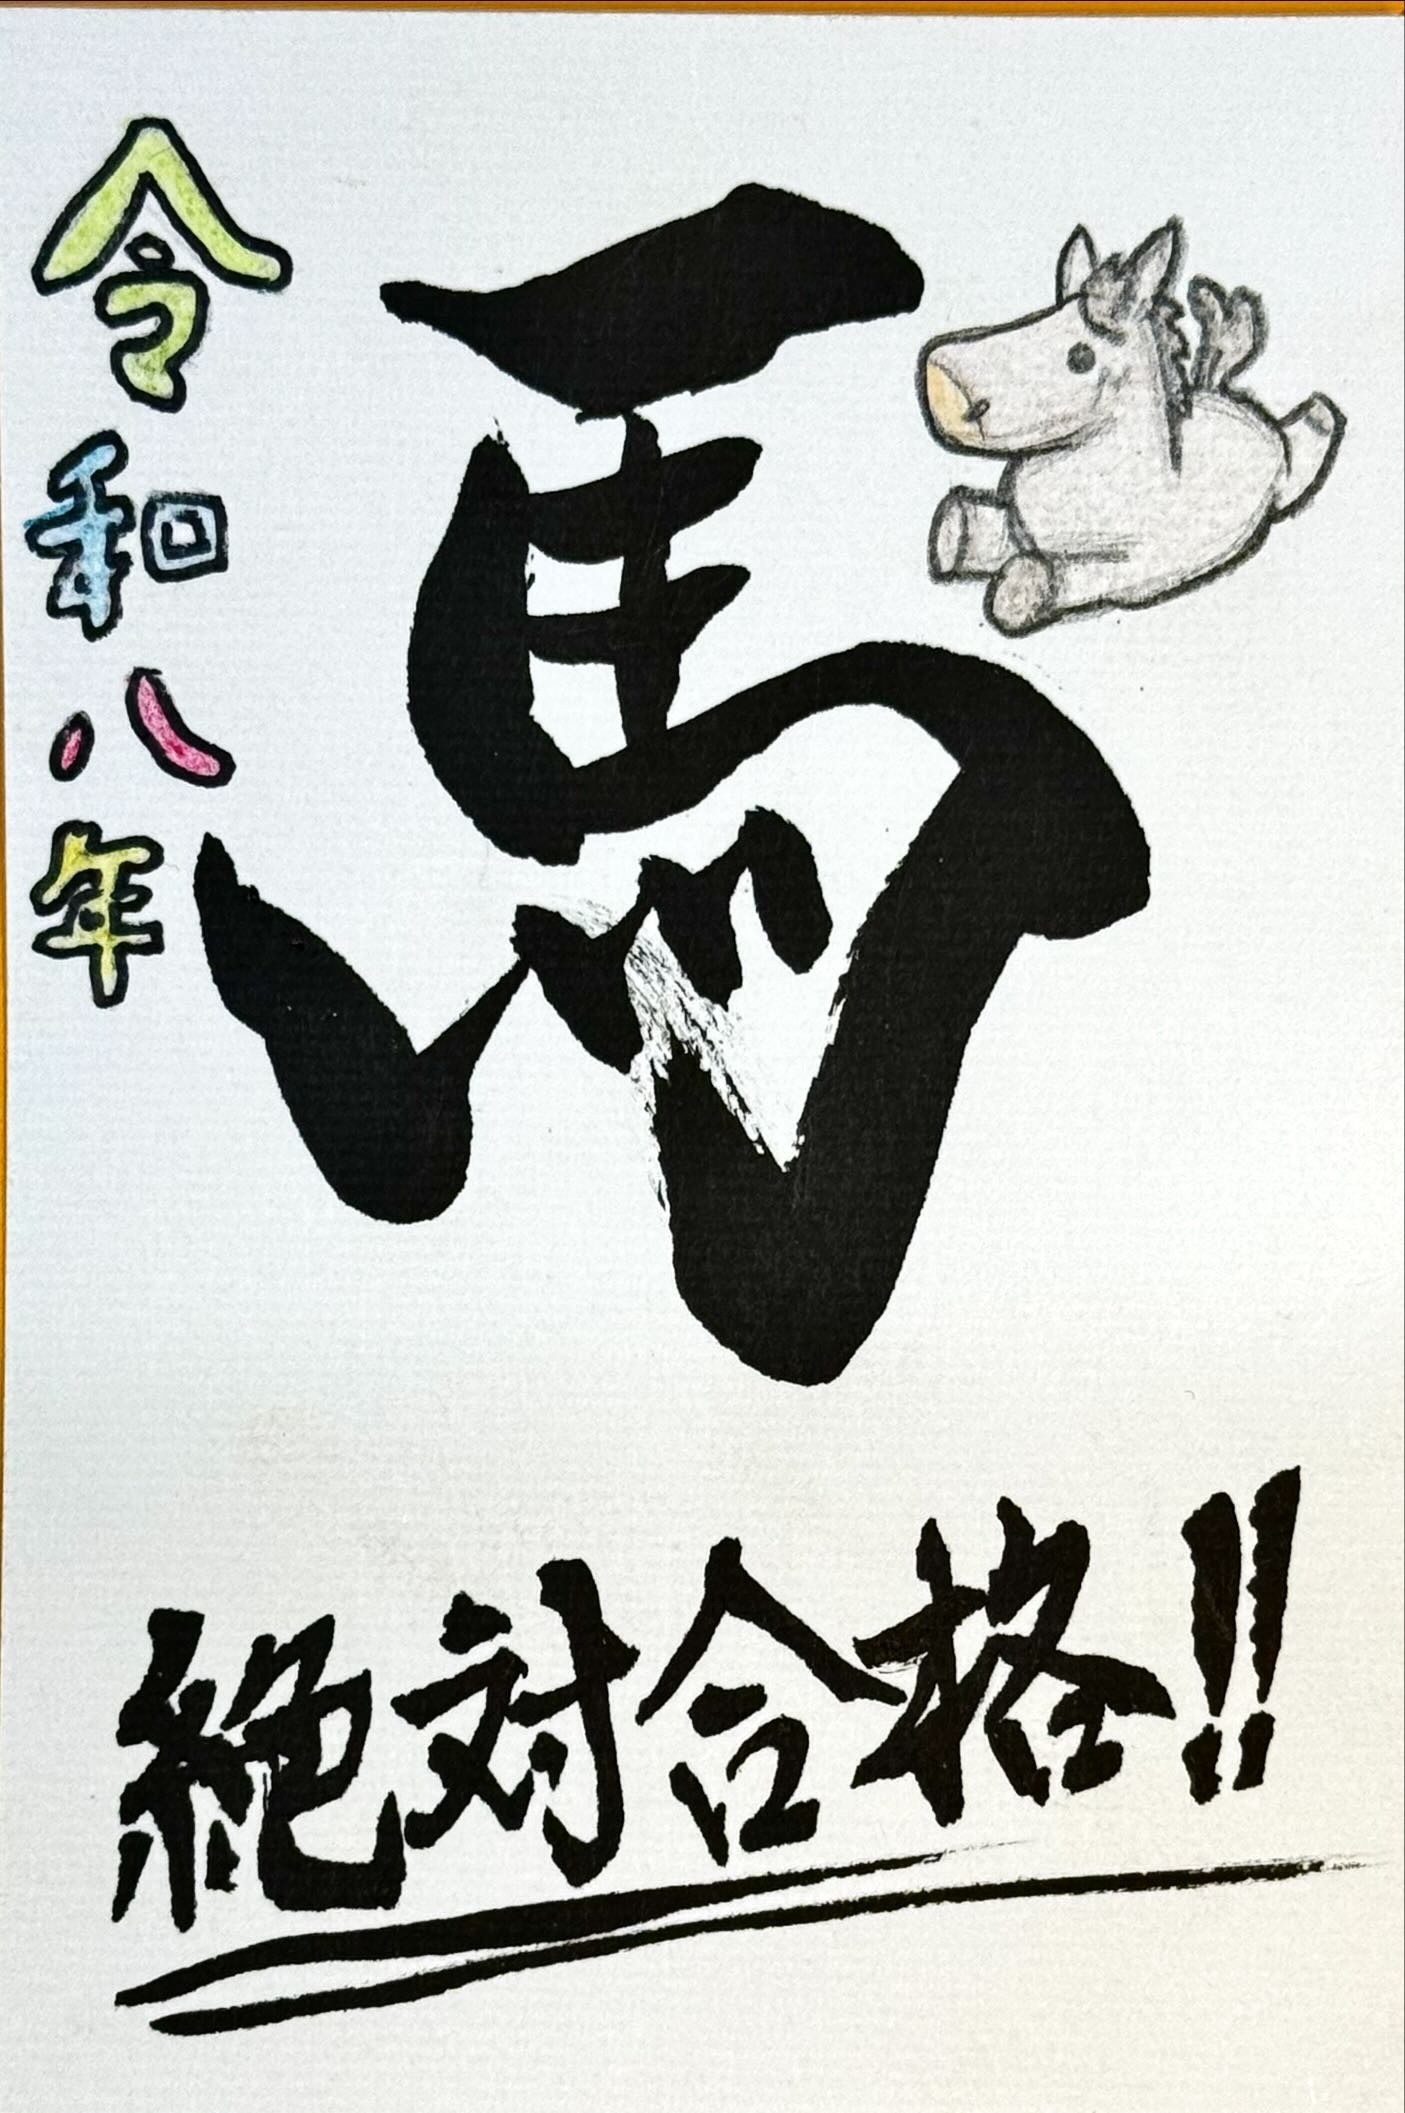 令和八年
馬
絶対合格!!